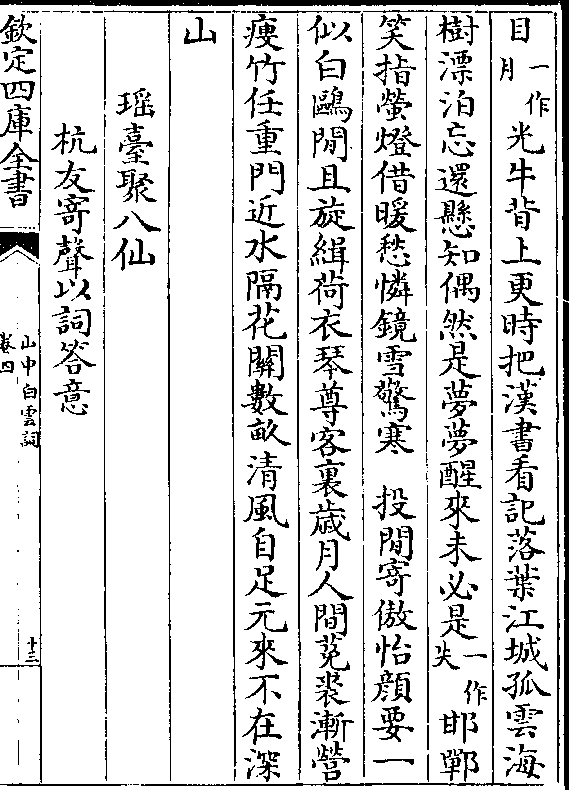 目一作月光牛背上更時把漢書看記落葉江城孤雲海
樹漂泊忘還懸知偶然是夢夢醒來未必是一作失邯鄲
笑指螢燈借暖愁憐鏡雪驚寒　投閒寄傲怡顏要一
似白鷗閒且旋緝荷衣琴尊客裏歲月人間菟裘漸營
瘦竹任重門近水隔花關數畝清風自足元來不在深
山
瑶臺聚八仙
杭友寄聲以詞答意
欽定四庫全書
山中白雲詞
卷四
十三